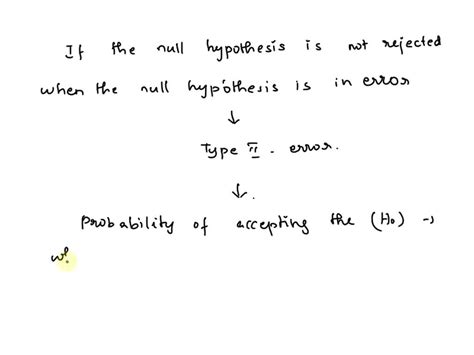 If the null hypothesis is not rejected
when the null hypothesis is in error
↓
Type II - error.
↓.
Probability of accepting the (H₀) →